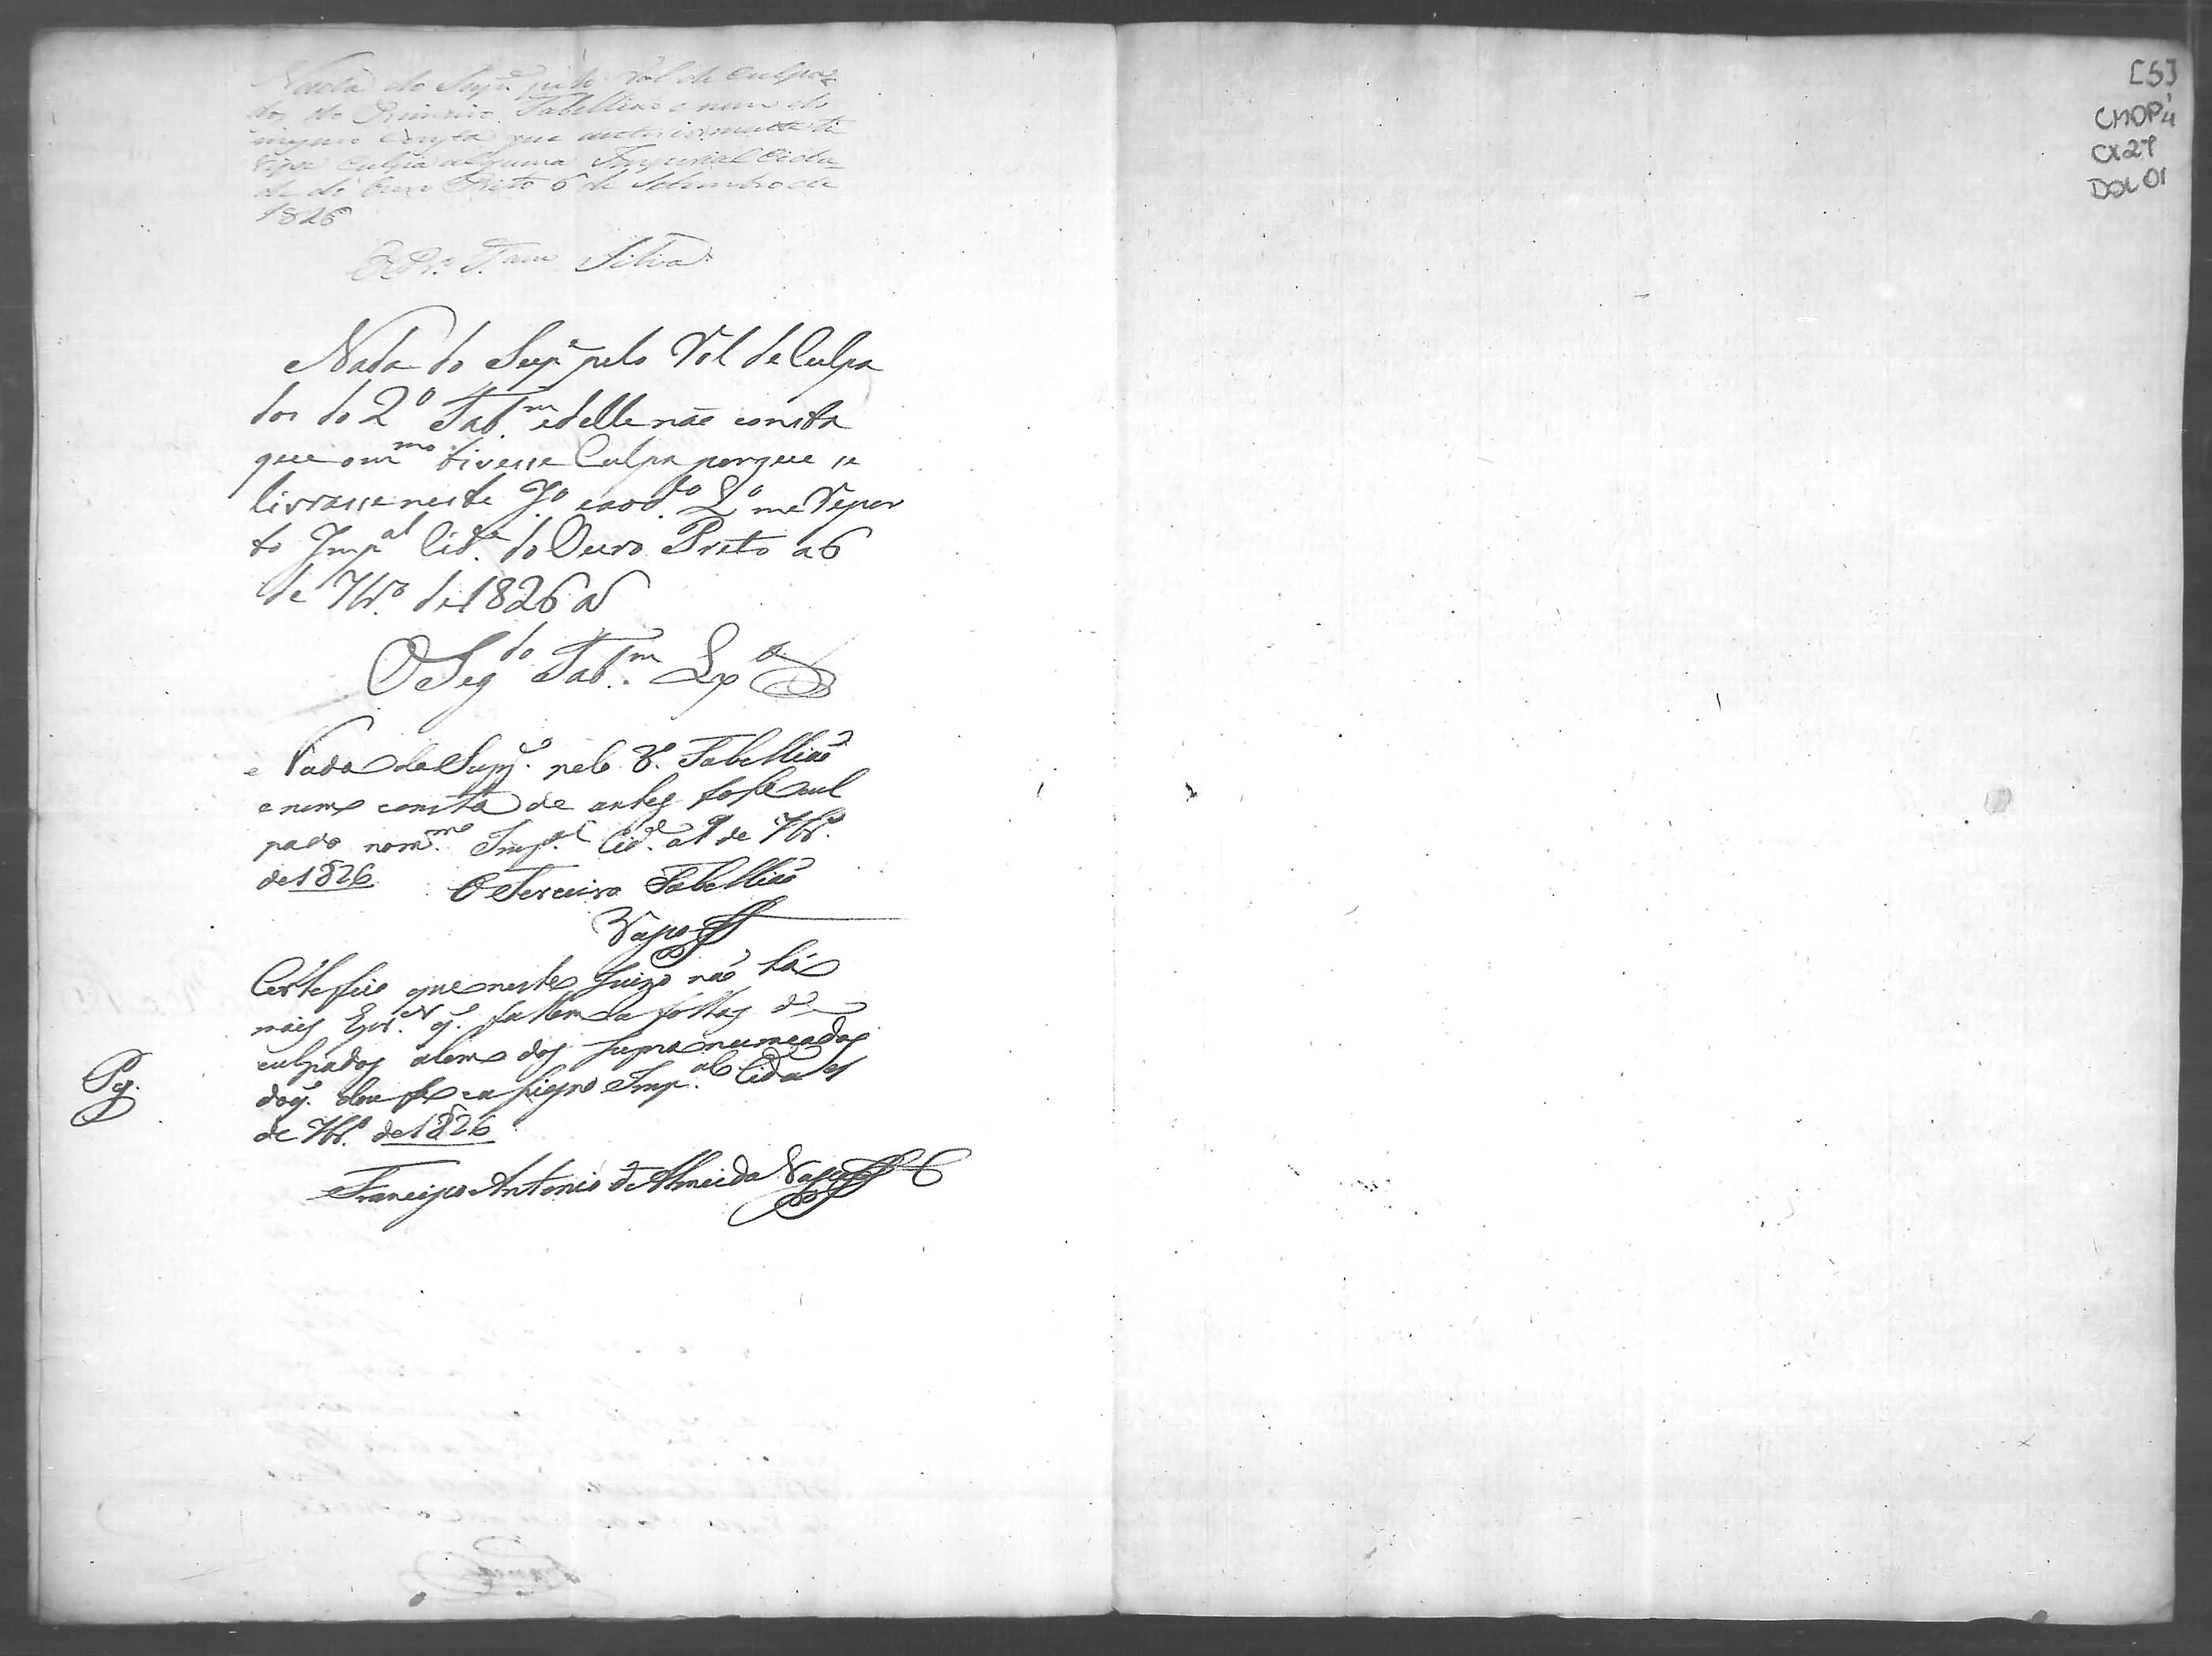 Nada do Sup.e pelo Rol de Culpa
dos do Primeiro Tabelliaõ e nem do
mesmo Consta que anteriormente ti
vesse Culpa alguma Imperial Cida
de do Ouro Preto 6 de Setembro de
1826
O Pr.o T.am Silva
Nada do Sup.e pelo Rol de Culpa
dos do 2º Tab.m e delle naõ consta
que o m.mo tivesse Culpa porque se
livrasse neste J.o e ao d.o Rol me Repor
to Imp.al Cid.e do Ouro Preto a 6
de 7br.o de 1826
O Seg.do Tab.m
Nada do Sup.e pelo 3.o Tabelliaõ
e nem consta de antes fosse cul
pado no m.mo Imp.al Cid.e a 9 de 7br.o
de 1826 O Terceiro Tabelliaõ
Vasco
Certefico que neste Juizo naõ há
mais Escr.es q. fallem a folhas de
culpados alem dos supra numeados
do q. dou fe e a signo Imp.al Cida
de 7br.o de 1826
Francisco Antonio de Almeida Vasco
Pg.
[5]
CMOP
CX 27
DOC 01